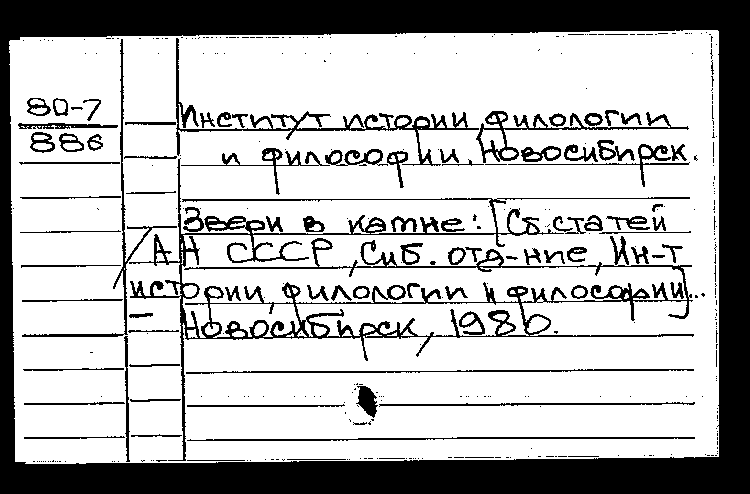 80-7
886
Институт истории, филологии
и философии. Новосибирск.
Звери в камне: [Сб. статей
/ АН СССР, Сиб. отд-ние, Ин-т
истории, филологии и философии]...
– Новосибирск, 1980.